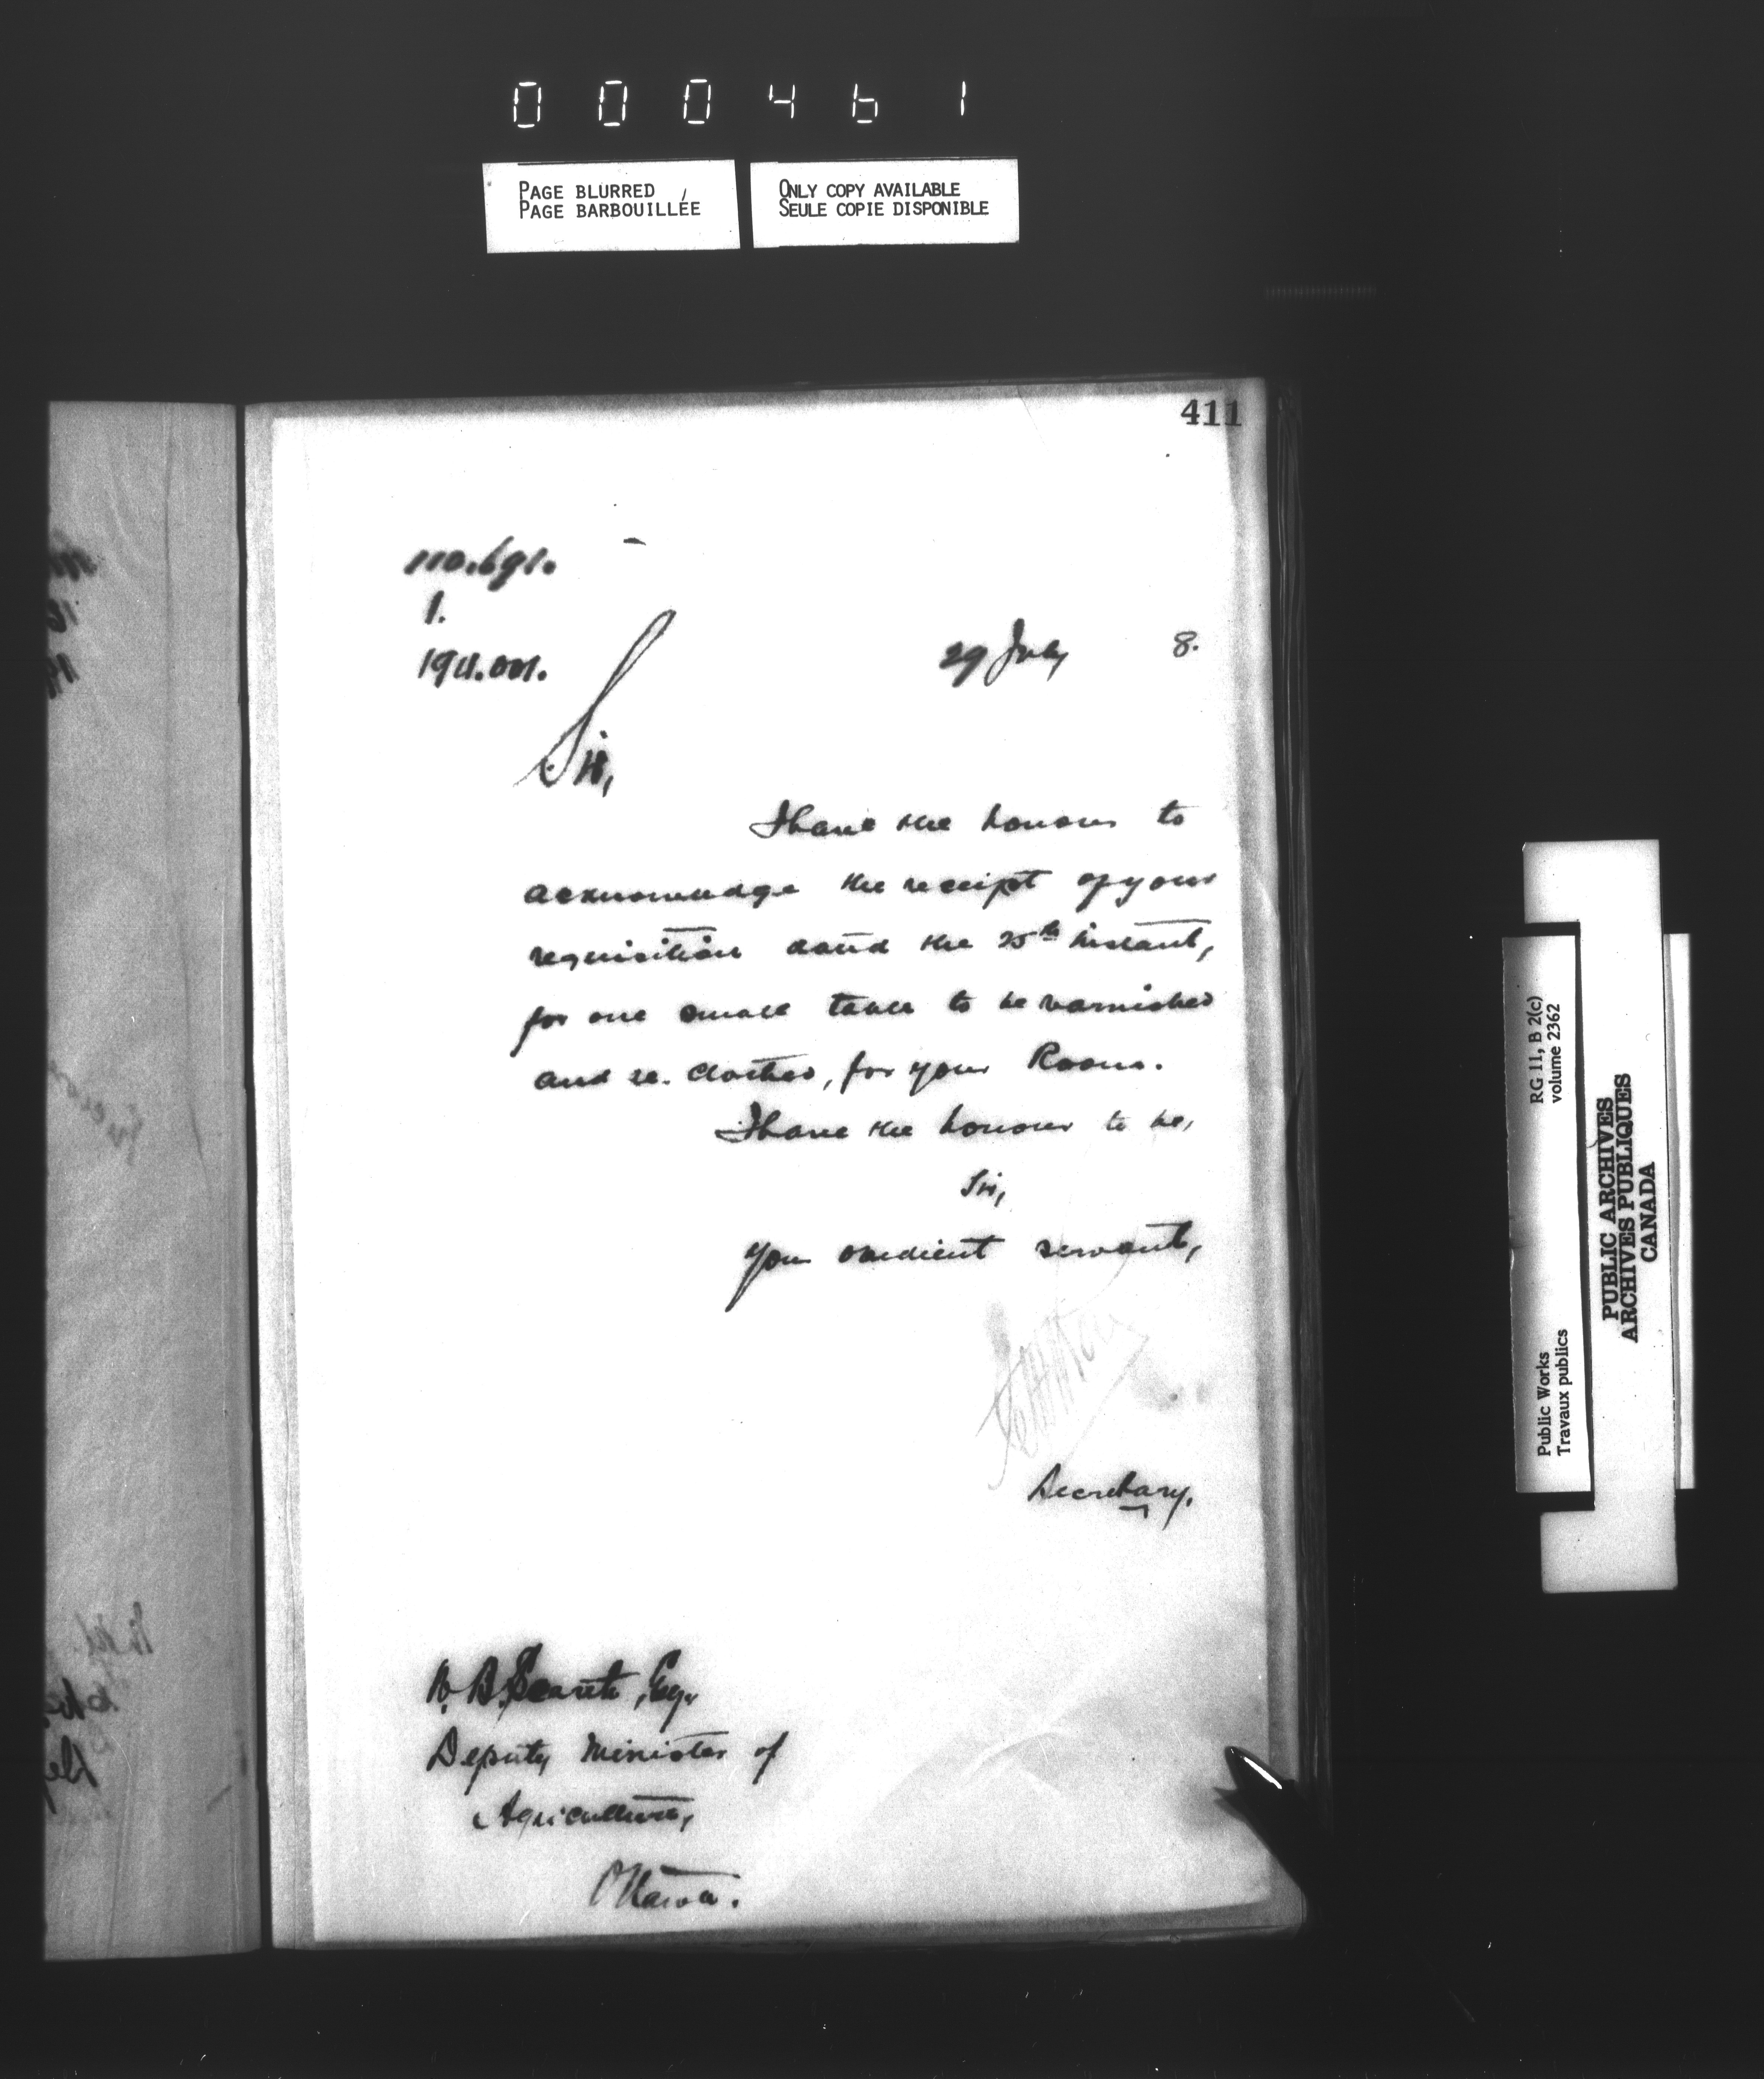 000461
PAGE BLURRED
PAGE BARBOUILLÉE
ONLY COPY AVAILABLE
SEULE COPIE DISPONIBLE
411
110.691.
1.
29 July 8.
Sir,
I have the honour to
acknowledge the receipt of your
requisition dated the 25th instant,
for one small table to be varnished
and re. clothed, for your Room.
I have the honour to be,
Sir,
Your obedient servant,
Secretary.
W. B. Scarth, Esq.
Deputy Minister of
Agriculture,
Ottawa.
RG 11, B 2(c)
volume 2362
Public Works
Travaux publics
PUBLIC ARCHIVES
ARCHIVES PUBLIQUES
CANADA